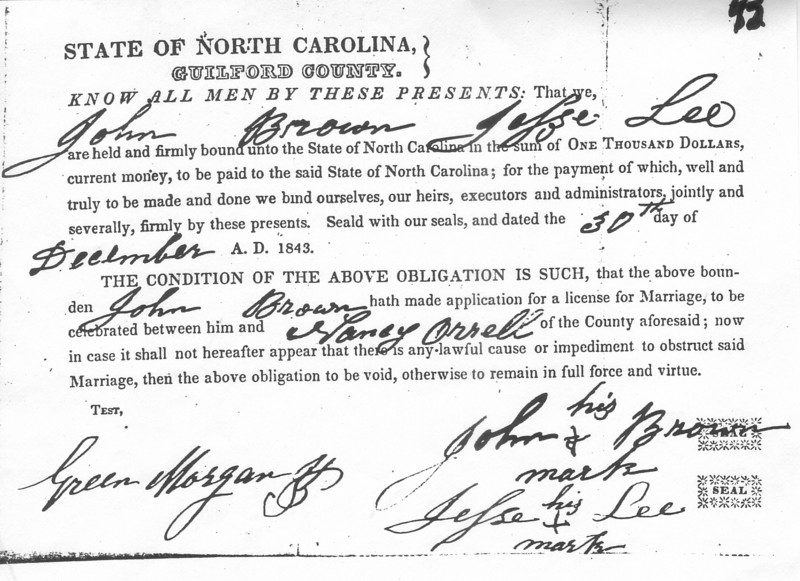 43
STATE OF NORTH CAROLINA,
GUILFORD COUNTY.
KNOW ALL MEN BY THESE PRESENTS: That we,
John Brown Jesse Lee
are held and firmly bound unto the State of North Carolina in the sum of ONE THOUSAND DOLLARS,
current money, to be paid to the said State of North Carolina; for the payment of which, well and
truly to be made and done we bind ourselves, our heirs, executors and administrators, jointly and
severally, firmly by these presents. Seald with our seals, and dated the 30th day of
December A. D. 1843.
THE CONDITION OF THE ABOVE OBLIGATION IS SUCH, that the above boun-
den John Brown hath made application for a license for Marriage, to be
celebrated between him and Nancy Orrell of the County aforesaid; now
in case it shall not hereafter appear that there is any lawful cause or impediment to obstruct said
Marriage, then the above obligation to be void, otherwise to remain in full force and virtue.
TEST,
his
John + Brown SEAL
mark
Green Morgan
SEAL
his
Jesse + Lee
mark